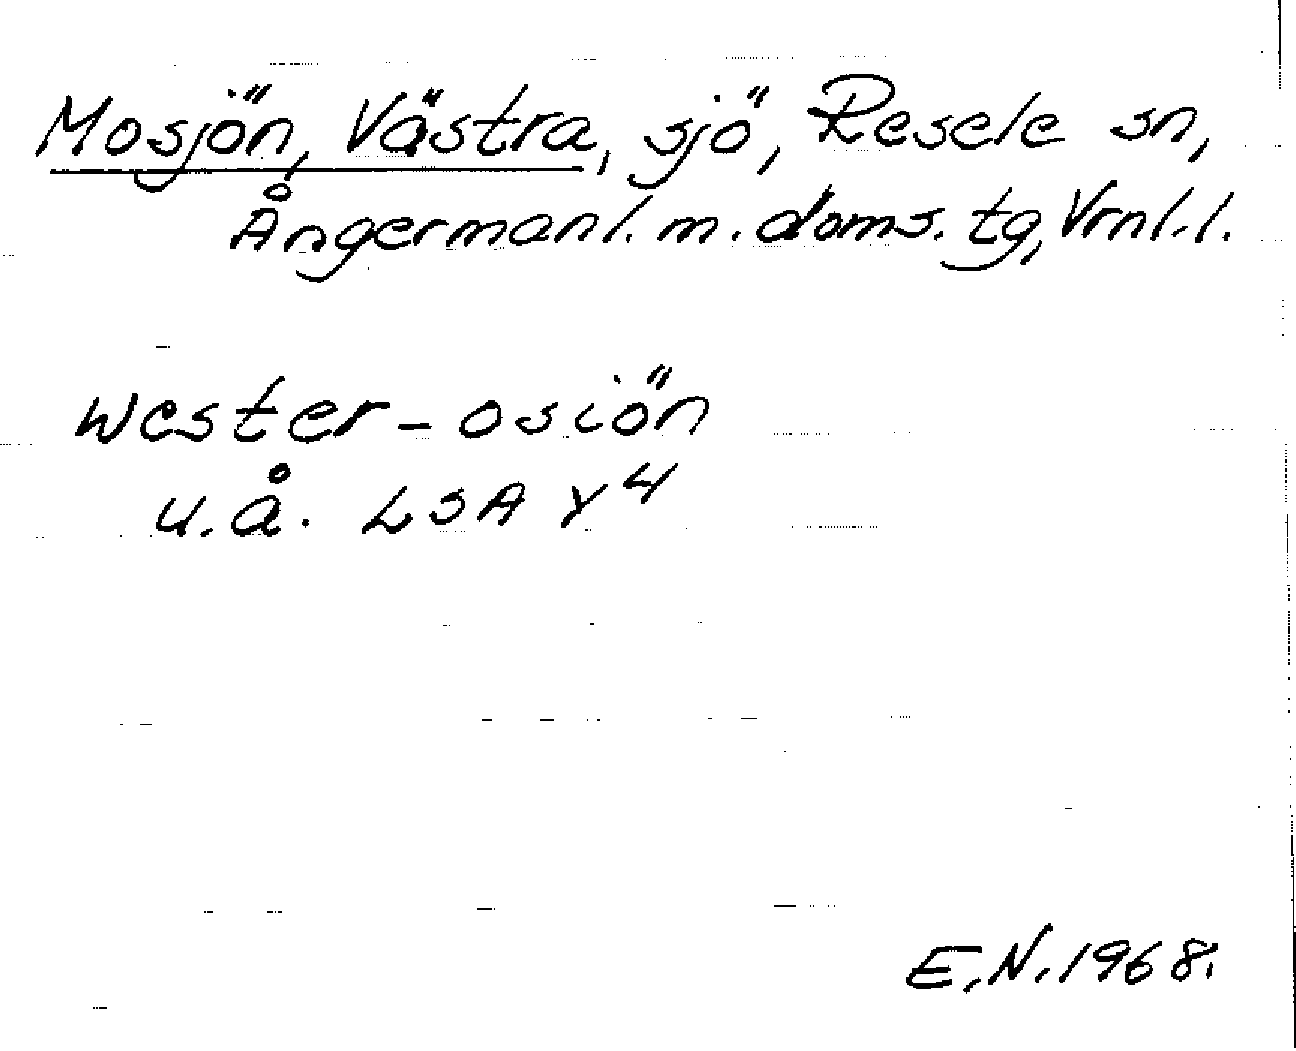 Mosjön, Västra, sjö, Resele sn,
Ångermanl. m. doms. tg, Vrnl. l.
Wester-osiön
u.å. LSA Y4
E.N. 1968.